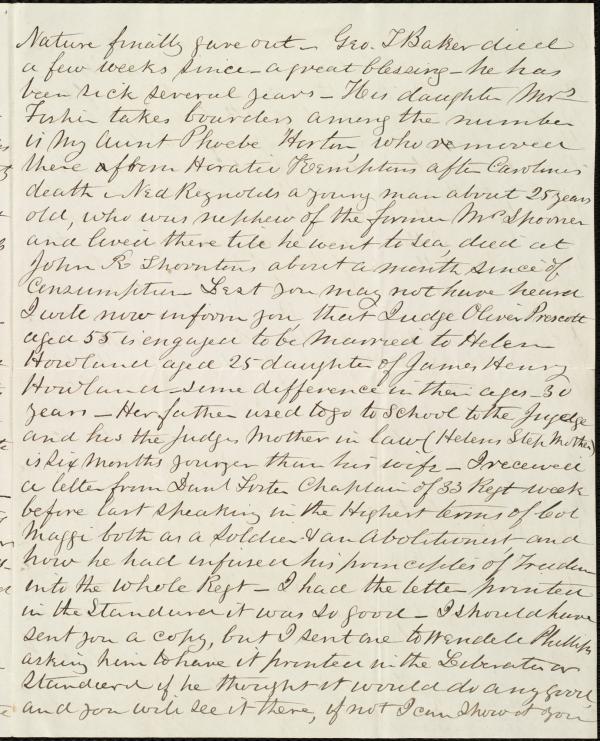 Nature finally gave out – Geo. T Baker died
a few weeks since – a great blessing – he has
been sick several years – His daughter Mrs
Fisher takes boarders among the number
is my Aunt Phoebe Horton who removed
there from Horatio Kempton's after Carolines
death – Ned Reynolds a young man about 25 years
old, who was nephew of the former Mrs Spooner
and lived there till he went to sea, died at
John R Thorntons about a month since of
Consumption – Lest you may not have heard
I will now inform you, that Judge Oliver Prescott
aged 55 is engaged to be married to Helen
Howland aged 25 daughter of James Henry
Howland – some difference in their ages – 30
years – Her father used to go to School to the Judge
and his the Judges Mother in law (Helens Step Mother)
is six months younger than his wife – I received
a letter from Danl Foster Chaplain of 33 Regt week
before last speaking in the Highest terms of Col
Maggi both as a Soldier & an Abolitionist and
how he had infused his principles of Freedom
into the whole Regt – I had the letter printed
in the Standard it was so good – I should have
sent you a copy, but I sent one to Wendell Phillips
asking him to have it printed in the Liberator or
Standard if he thought it would do any good,
and you will see it there, if not I can show it you